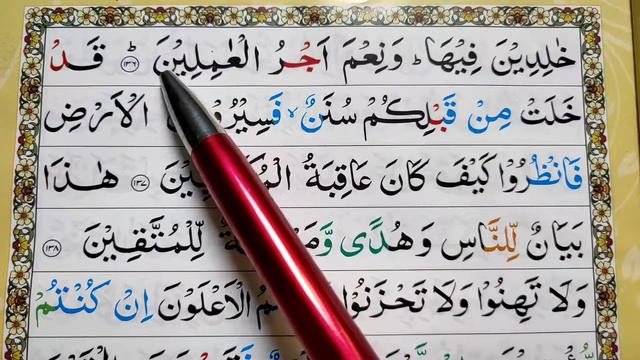 خٰلِدِيْنَ فِيْهَا ؕ وَنِعْمَ اَجْرُ الْعٰمِلِيْنَ ﴿۱۳۶﴾ قَدْ
خَلَتْ مِنْ قَبْلِكُمْ سُنَنٌ ۙ فَسِيْرُوْا الْاَرْضِ
فَانْظُرُوْا كَيْفَ كَانَ عَاقِبَةُ ﴿۱۳۷﴾ هٰذَا
بَيَانٌ لِّلنَّاسِ وَهُدًى لِّلْمُتَّقِيْنَ ﴿۱۳۸﴾
وَلَا تَهِنُوْا وَلَا تَحْزَنُوْا الْاَعْلَوْنَ اِنْ كُنْتُمْ